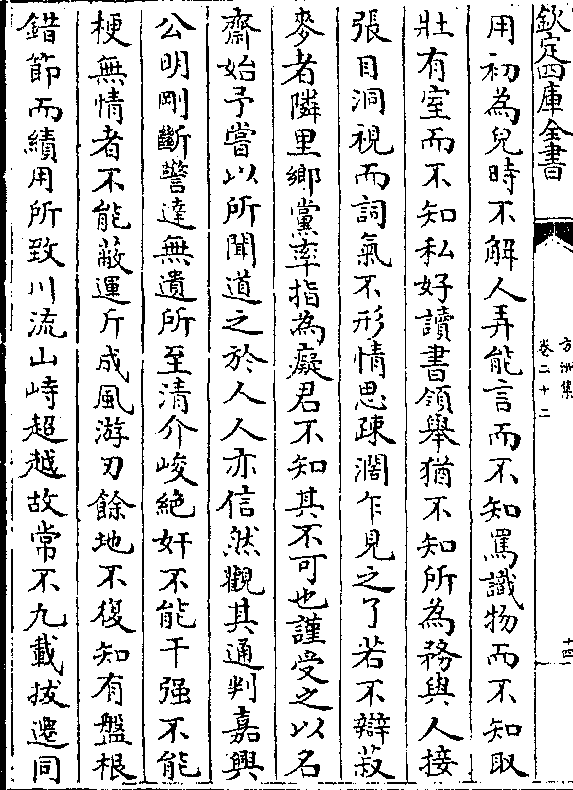 欽定四庫全書
方洲集
卷二十二
十四
用初為兒時不解人弄能言而不知罵識物而不知取
壯有室而不知私好讀書領舉猶不知所為務與人接
張目洞視而詞氣不形情思疎濶乍見之了若不辯菽
麥者隣里鄉黨率指為癡君不知其不可也謹受之以名
齋始予嘗以所聞道之於人人亦信然觀其通判嘉興
公明剛斷警達無遺所至清介峻絶奸不能干强不能
梗無情者不能蔽運斤成風游刃餘地不復知有盤根
錯節而績用所致川流山峙超越故常不九載拔遷同